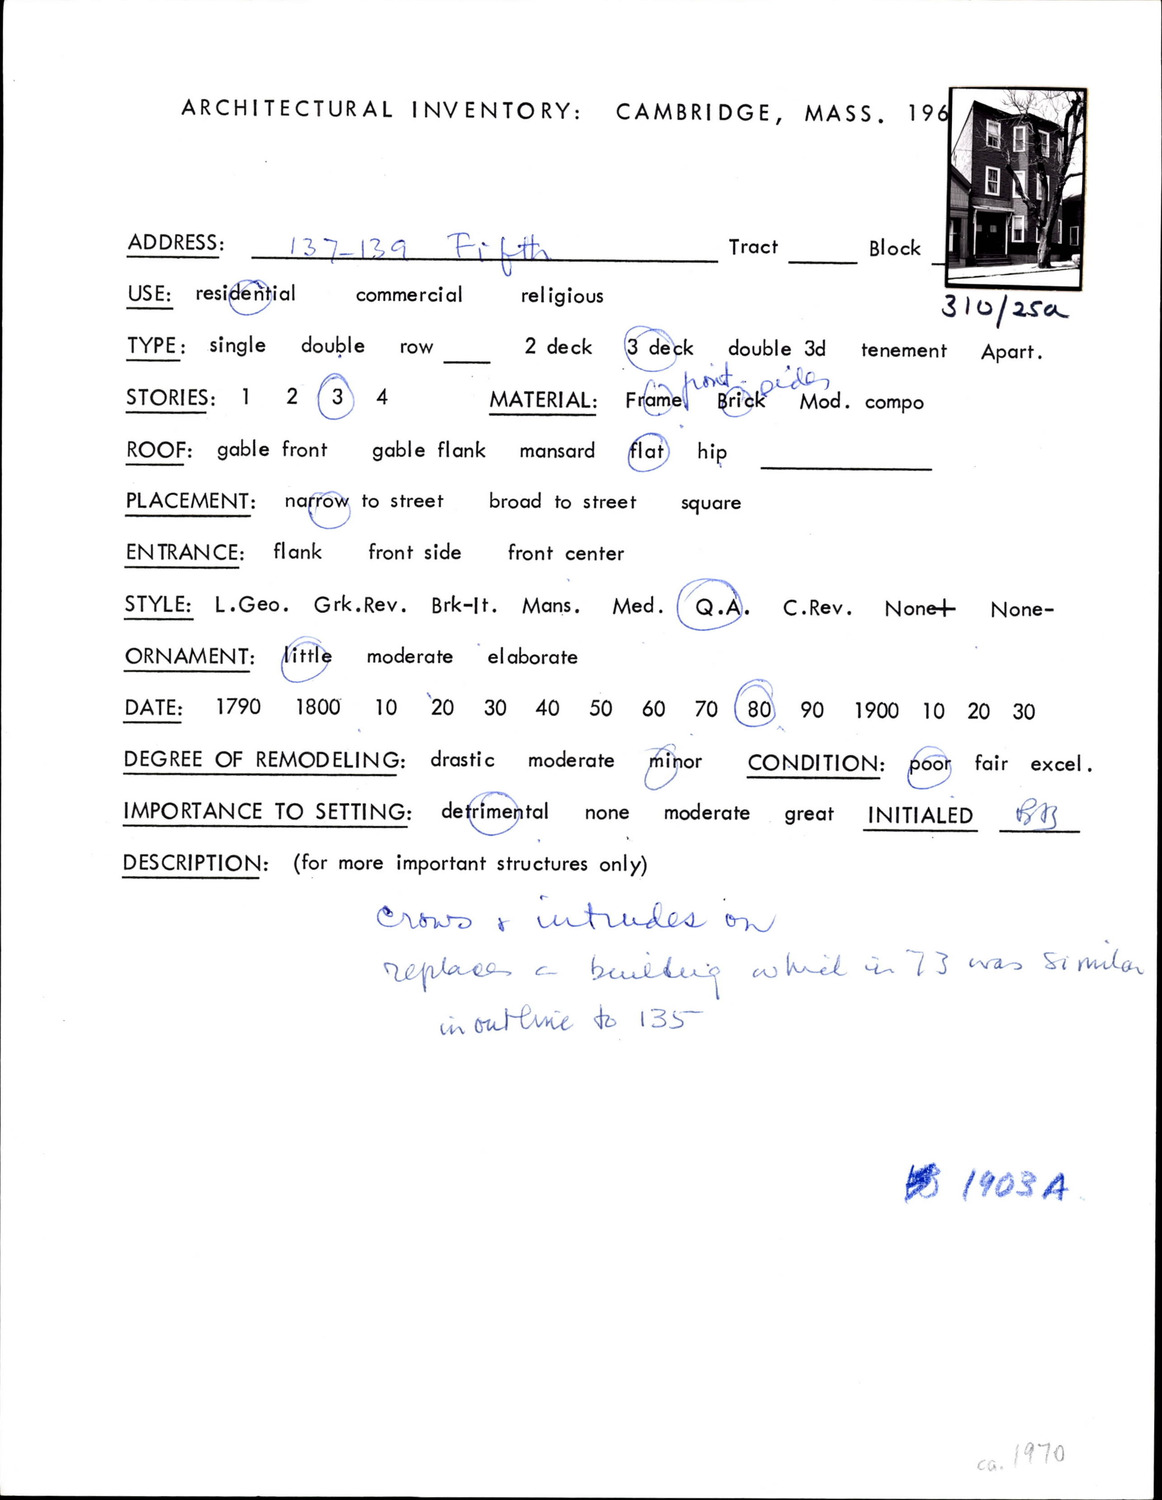 ARCHITECTURAL INVENTORY: CAMBRIDGE, MASS. 196
ADDRESS: 137-139 Fifth Tract Block
310/25a
USE: residential commercial religious
TYPE: single double row 2 deck 3 deck double 3d tenement Apart.
front - sides
STORIES: 1 2 3 4 MATERIAL: Frame Brick Mod. compo
ROOF: gable front gable flank mansard flat hip
PLACEMENT: narrow to street broad to street square
ENTRANCE: flank front side front center
STYLE: L.Geo. Grk.Rev. Brk-It. Mans. Med. Q.A. C.Rev. None+ None-
ORNAMENT: little moderate elaborate
DATE: 1790 1800 10 20 30 40 50 60 70 80 90 1900 10 20 30
DEGREE OF REMODELING: drastic moderate minor CONDITION: poor fair excel.
IMPORTANCE TO SETTING: detrimental none moderate great INITIALED BB
DESCRIPTION: (for more important structures only)
crows & intrudes on
replaces a building which in 73 was similar
in outline to 135
1903A
ca. 1970